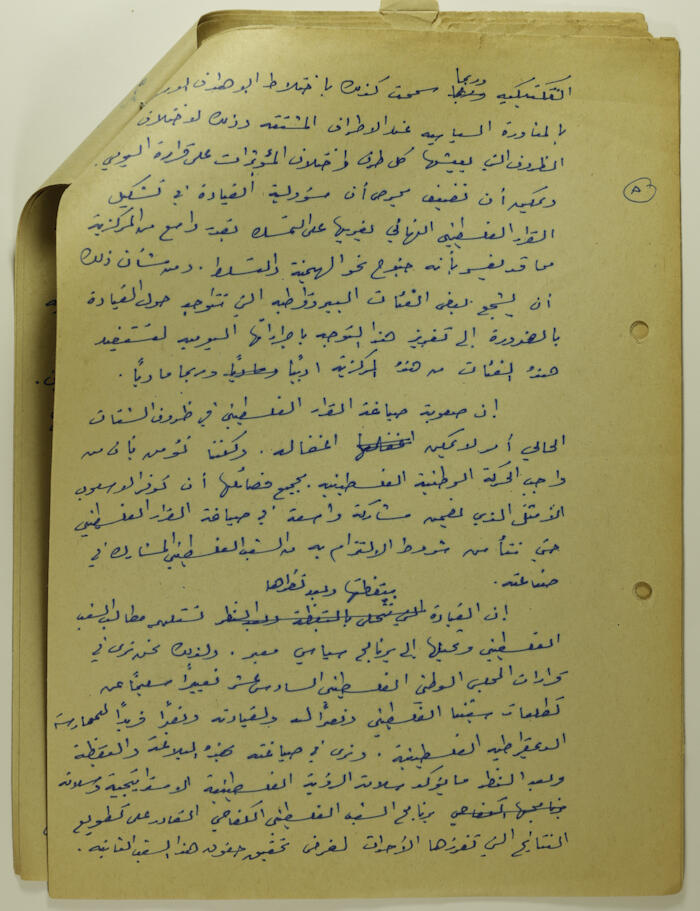 التكتيكية وربما سمحت كذلك باختلاط
بالمناورة السياسية عند الاطراف المشتقة وذلك لاختلاف
الظروف التي يعيشها كل طرف واختلاف المؤثرات على قراره اليومي.
ويمكن أن نضيف حرص أن مسؤولية القيادة في تشكيل
القرار الفلسطيني النهائي يغريها على التمسك بقدر واسع من المركزية
مما قد يفسر بأنه جنوح نحو الهيمنة والتسلط. ومن شأن ذلك
أن يشجع بعض الفئات البيروقراطية التي تتواجد حول القيادة
بالضرورة إلى تعزيز هذا التوجه باجراءاتها اليومية لتستفيد
هذه الفئات من هذه المركزية ادبياً وربما مادياً.
إن صعوبة صياغة القرار الفلسطيني في ظروف الشتات
الحالي أمر لا يمكن اغفاله. ولكننا نؤمن بأن من
واجب الحركة الوطنية الفلسطينية بجميع فصائلها أن توفر الاسلوب
الأمثل الذي يضمن مشاركة واسعة في صياغة القرار الفلسطيني
حتى نتأكد من شروط الالتزام به من الشعب الفلسطيني المشارك في
صناعته.
إن القيادة بيقظتها وبعد نظرها تستلهم مطالب الشعب
الفلسطيني وتحيلها إلى برنامج سياسي معبر. ولذلك نحن نرى في
قرارات المجلس الوطني الفلسطيني السادس عشر تعبيراً سليماً عن
تطلعات شعبنا الفلسطيني وفخراً له ولقيادته وفخراً فريداً للممارسة
الديمقراطية الفلسطينية. ونرى في صياغته بهذه البلاغة واليقظة
وبعد النظر ما يؤكد سلامة الرؤية الفلسطينية الاستراتيجية وسلامة
برنامج الشعب الفلسطيني الكفاحي القادر على تطويع
النتائج التي تفرزها الأحداث لغرض تحقيق حقوق هذا الشعب الثابتة.